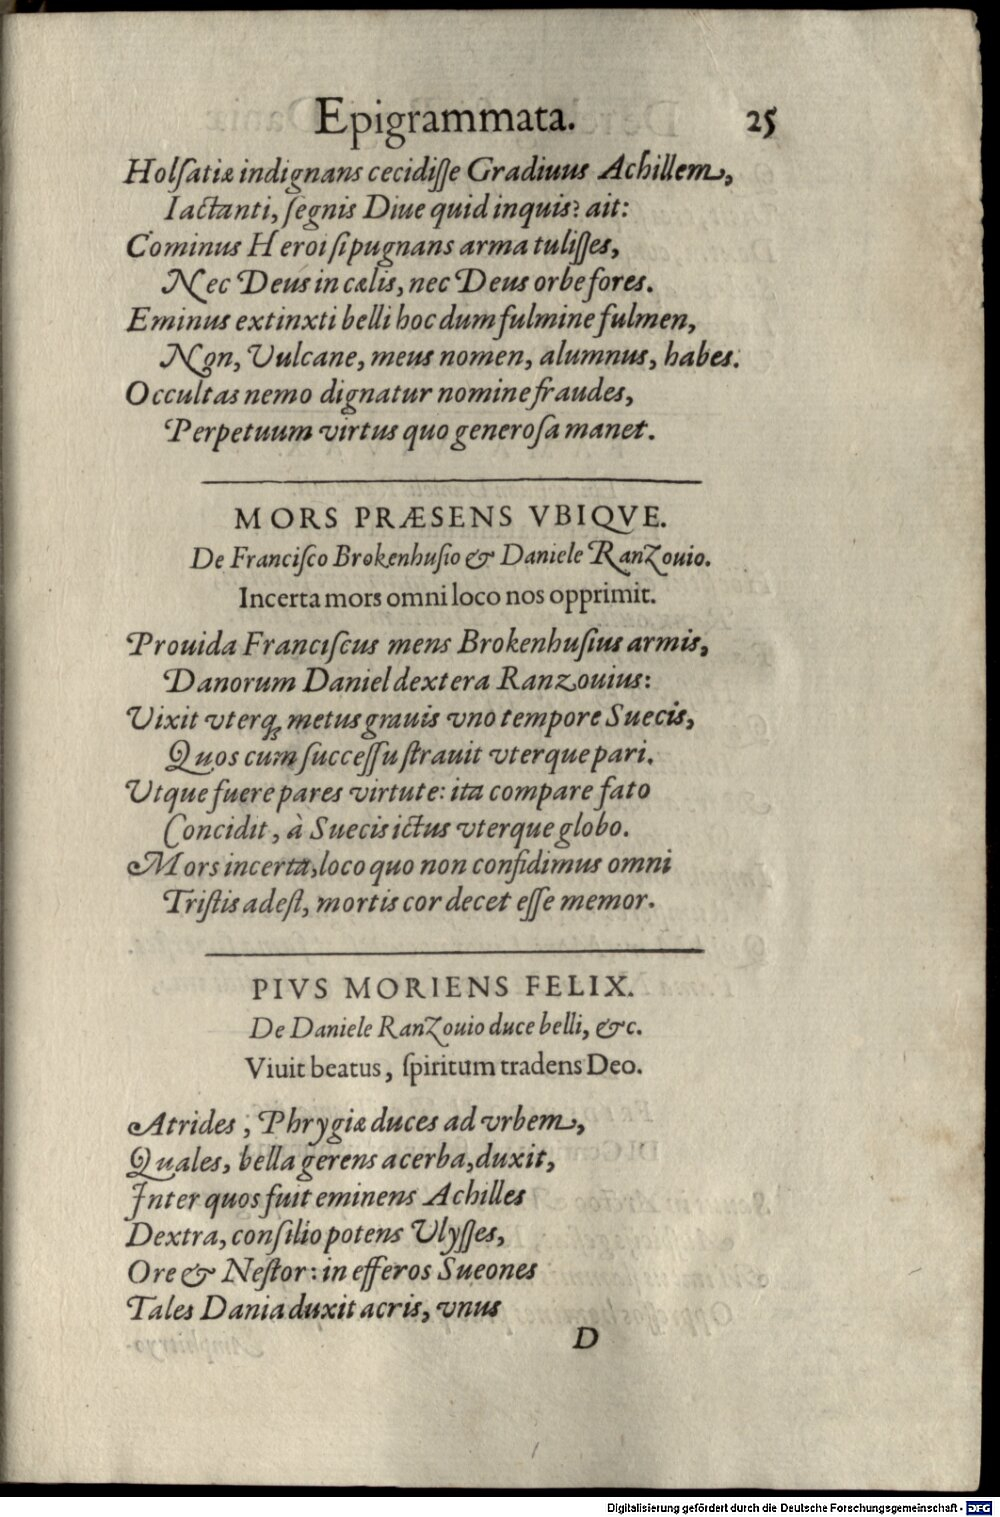 Epigrammata. 25
Holſatiæ indignans cecidiſſe Gradiuus Achillem,
Iactanti, ſegnis Diue quid inquis? ait:
Cominus Heroi ſi pugnans arma tuliſſes,
Nec Deus in cælis, nec Deus orbe fores.
Eminus extinxti belli hoc dum fulmine fulmen,
Non, Vulcane, meus nomen, alumnus, habes.
Occultas nemo dignatur nomine fraudes,
Perpetuum virtus quo generoſa manet.
MORS PRÆSENS VBIQVE.
De Franciſco Brokenhuſio & Daniele Ranzouio.
Incerta mors omni loco nos opprimit.
Prouida Franciſcus mens Brokenhuſius armis,
Danorum Daniel dextera Ranzouius:
Vixit vterq; metus grauis vno tempore Suecis,
Quos cum ſucceſſu ſtrauit vterque pari.
Vtque fuere pares virtute: ita compare fato
Concidit, à Suecis ictus vterque globo.
Mors incerta, loco quo non confidimus omni
Triſtis adeſt, mortis cor decet eſſe memor.
PIVS MORIENS FELIX.
De Daniele Ranzouio duce belli, &c.
Viuit beatus, ſpiritum tradens Deo.
Atrides, Phrygiæ duces ad vrbem,
Quales, bella gerens acerba, duxit,
Inter quos fuit eminens Achilles
Dextra, conſilio potens Vlyſſes,
Ore & Neſtor: in efferos Sueones
Tales Dania duxit acris, vnus
D
Digitalisierung gefördert durch die Deutsche Forschungsgemeinschaft - DFG